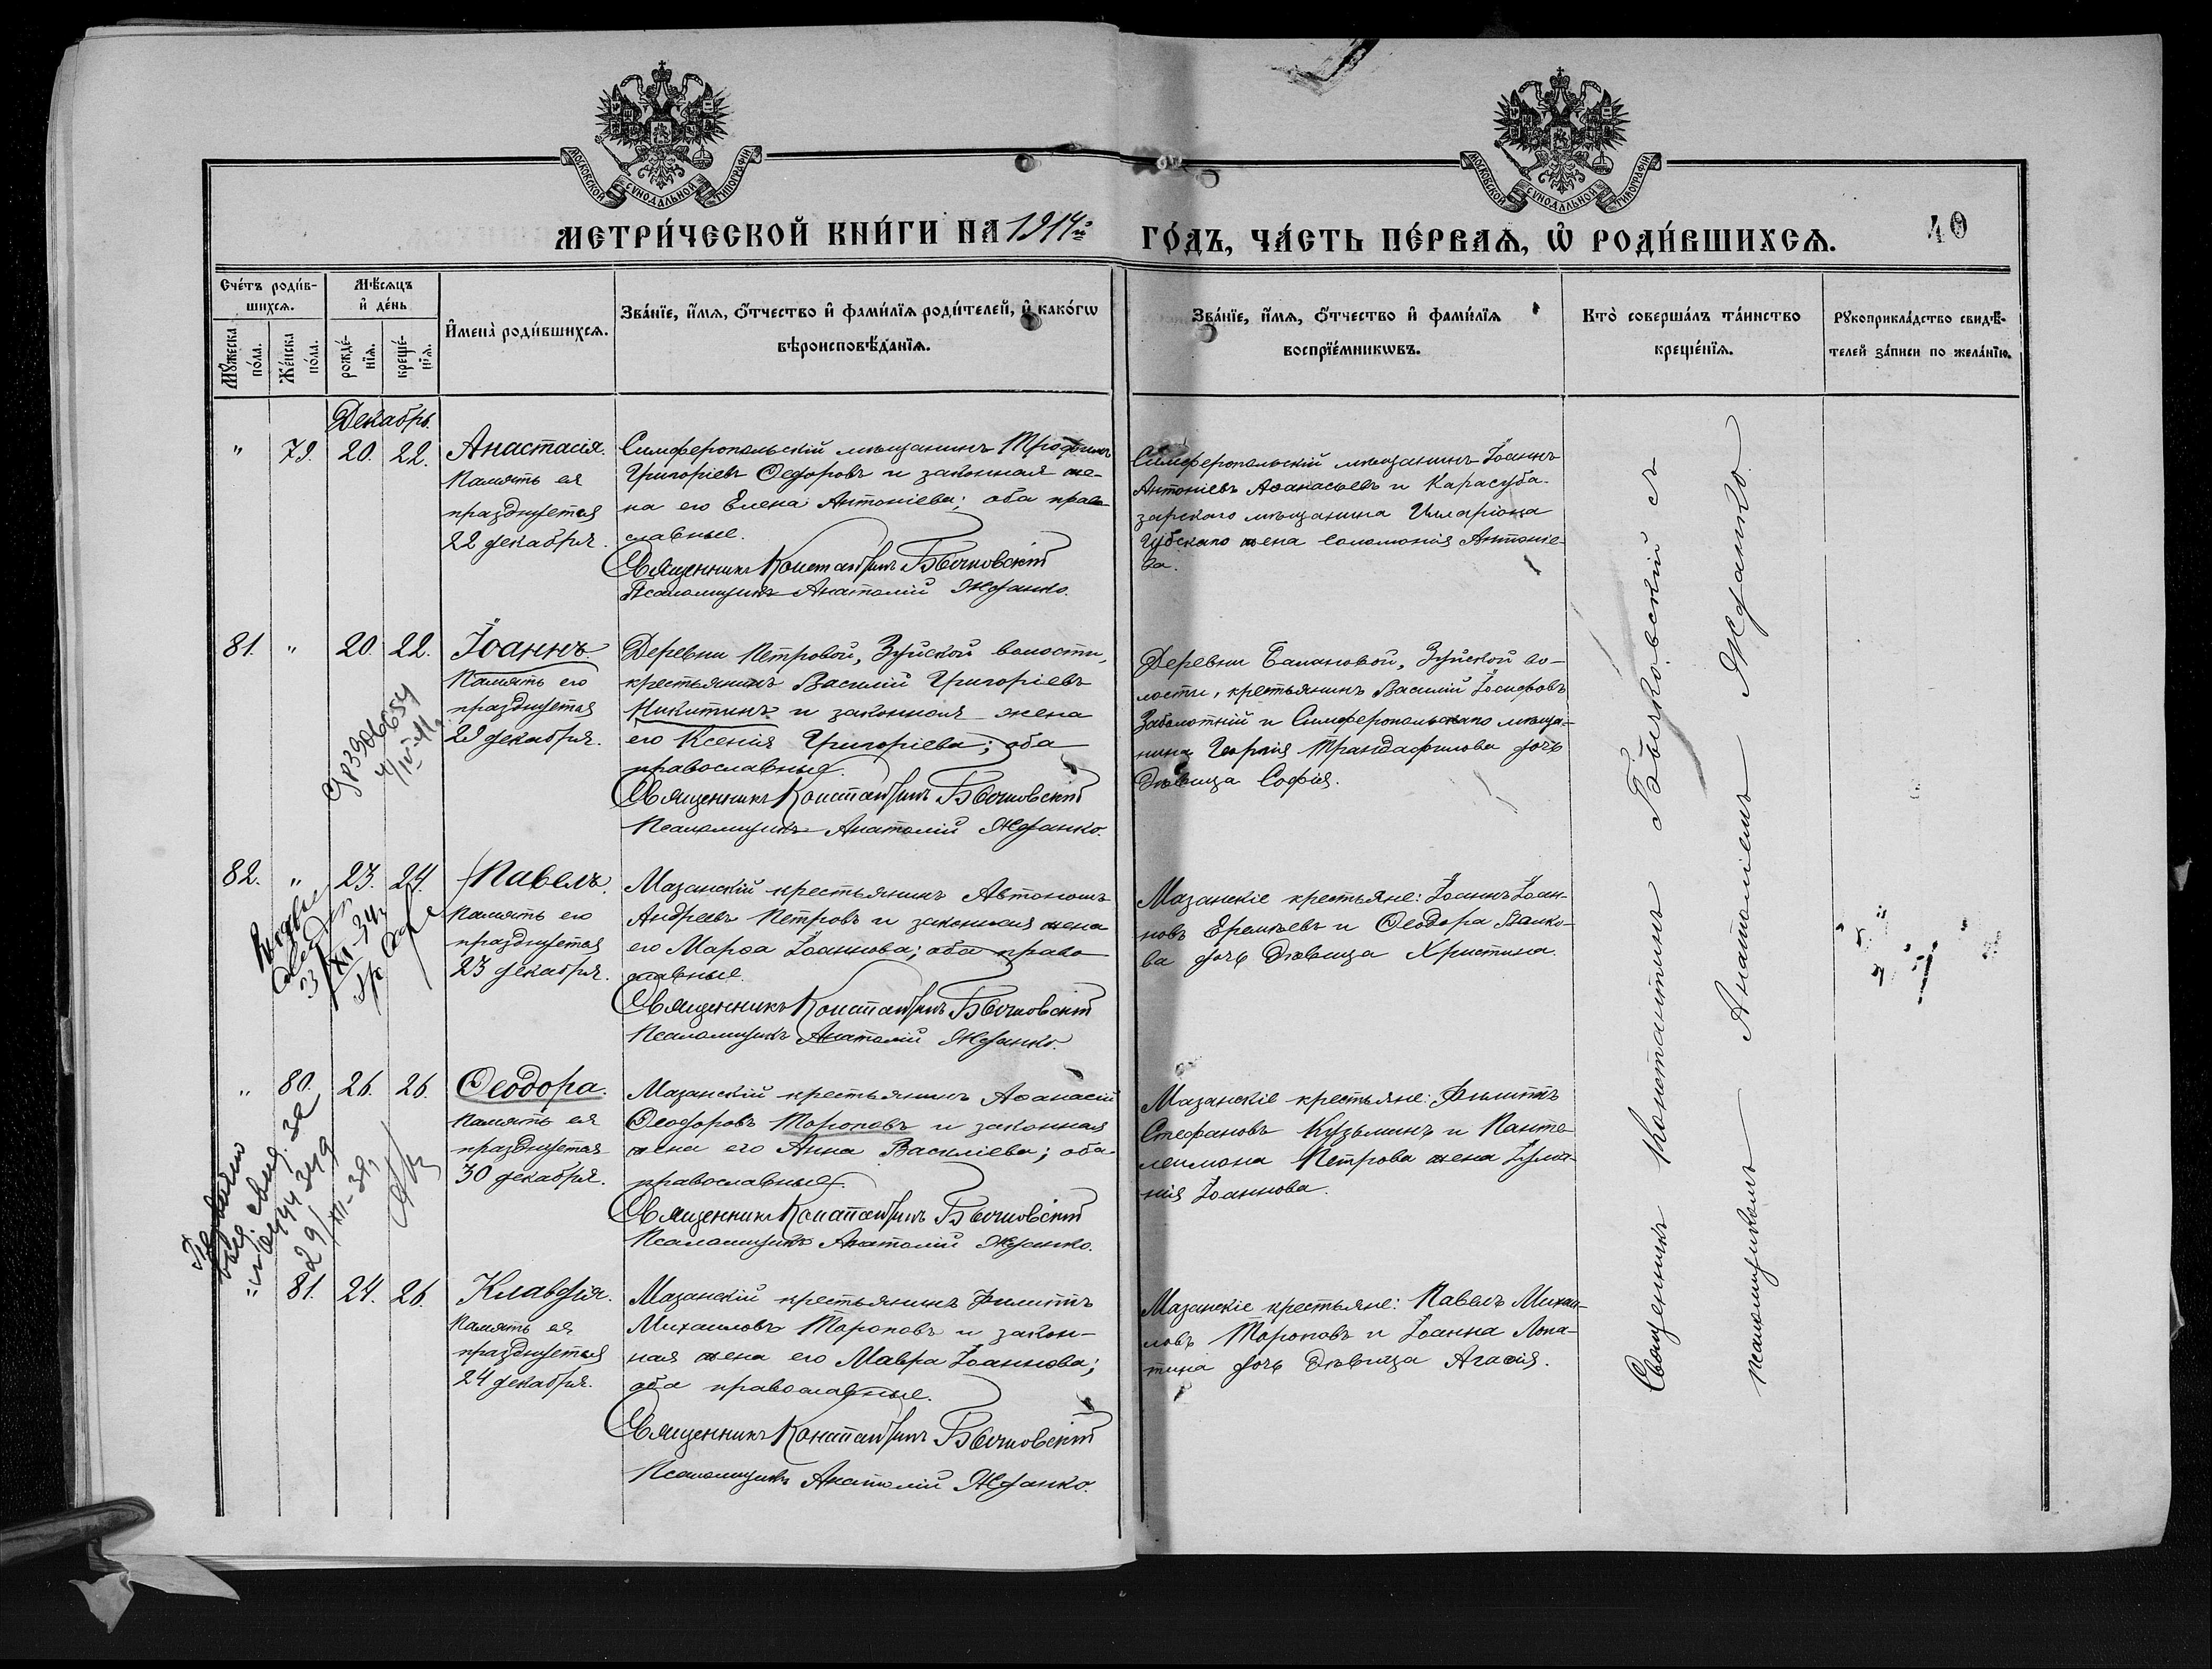 МОСКОВСКОЙ СѴНОДАЛЬНОЙ ТИПОГРАФІИ
МОСКОВСКОЙ СѴНОДАЛЬНОЙ ТИПОГРАФІИ
МЕТРИ́ЧЕСКОЙ КНИ́ГИ НА 1914й ГО́ДЪ, ЧА́СТЬ ПЕ́РВАѦ, Ѡ҆ РОДИ́ВШИХСѦ.
40
Сче́тъ роди́в-
шихсѧ.
Мꙋ́жеска
по́ла.
Же́нска
по́ла.
Мѣ́сѧцъ
и҆ де́нь
рожде́-
нїѧ.
креще́-
нїѧ.
И҆мена̀ роди́вшихсѧ.
Зва́нїе, и҆́мѧ, ѻ҆́тчество и҆ фами́лїѧ роди́телей, и҆ како́гѡ
вѣроисповѣ́данїѧ.
Зва́нїе, и҆́мѧ, ѻ҆́тчество и҆ фами́лїѧ
воспрїе́мникѡвъ.
Кто̀ соверша́лъ та́инство
креще́нїѧ.
Рꙋкоприкла́дство свидѣ́-
телей за́писи по жела́нїю.
Декабрь.
" 79. 20. 22.
Анастасія.
Память ея
празднуется
22 декабря.
Симферопольскій мѣщанинъ Трофимъ
Григоріевъ Ѳедоровъ и законная же-
на его Елена Антоніева; оба право-
славные.
Священникъ Константинъ Бычковскій
Псаломщикъ Анатолій Жданко.
Симферопольскій мѣщанинъ Іоаннъ
Антоніевъ Аѳанасьевъ и Карасуба-
зарскаго мѣщанина Илларіона
Губскаго жена Соломонія Антоніе-
ва.
81. " 20. 22.
Іоаннъ
Память его
празднуется
29 декабря.
Деревни Петровой, Зуйской волости,
крестьянинъ Василій Григоріевъ
Никитинъ и законная жена
его Ксенія Григоріева; оба
православные.
Священникъ Константинъ Бычковскій
Псаломщикъ Анатолій Жданко.
Деревни Балановой, Зуйской во-
лости, крестьянинъ Василій Іосифовъ
Заболотній и Симферопольскаго мѣща-
нина Георгія Трандафилова дочь
дѣвица Софія.
82. " 23. 24.
Павелъ.
Память его
празднуется
23 декабря.
Мазанскій крестьянинъ Автономъ
Андреевъ Петровъ и законная жена
его Марѳа Іоаннова; оба право
славные.
Священникъ Константинъ Бычковскій
Псаломщикъ Анатолій Жданко.
Мазанскіе крестьяне: Іоаннъ Іоан-
новъ Еремѣевъ и Ѳеодора Волко-
ва дочь дѣвица Христина.
" 80. 26. 26.
Ѳеодора.
Память ея
празднуется
30 декабря.
Мазанскій крестьянинъ Аѳанасій
Ѳеодоровъ Тороповъ и законная
жена его Анна Василіева; оба
православные.
Священникъ Константинъ Бычковскій
Псаломщикъ Анатолій Жданко.
Мазанскіе крестьяне: Филиппъ
Стефановъ Кузьминъ и Панте-
леимона Петрова жена Іулiа-
нія Іоаннова.
" 81. 24. 26.
Клавдія.
Память ея
празднуется
24 декабря.
Мазанскій крестьянинъ Филиппъ
Михаиловъ Тороповъ и закон-
ная жена его Мавра Іоаннова;
оба православные.
Священникъ Константинъ Бычковскій
Псаломщикъ Анатолій Жданко.
Мазанскіе крестьяне: Павелъ Михаи-
ловъ Тороповъ и Іоанна Лопа-
тина дочь дѣвица Агаѳія.
Священникъ Константинъ Бычковскій съ
псаломщикомъ Анатоліемъ Жданко